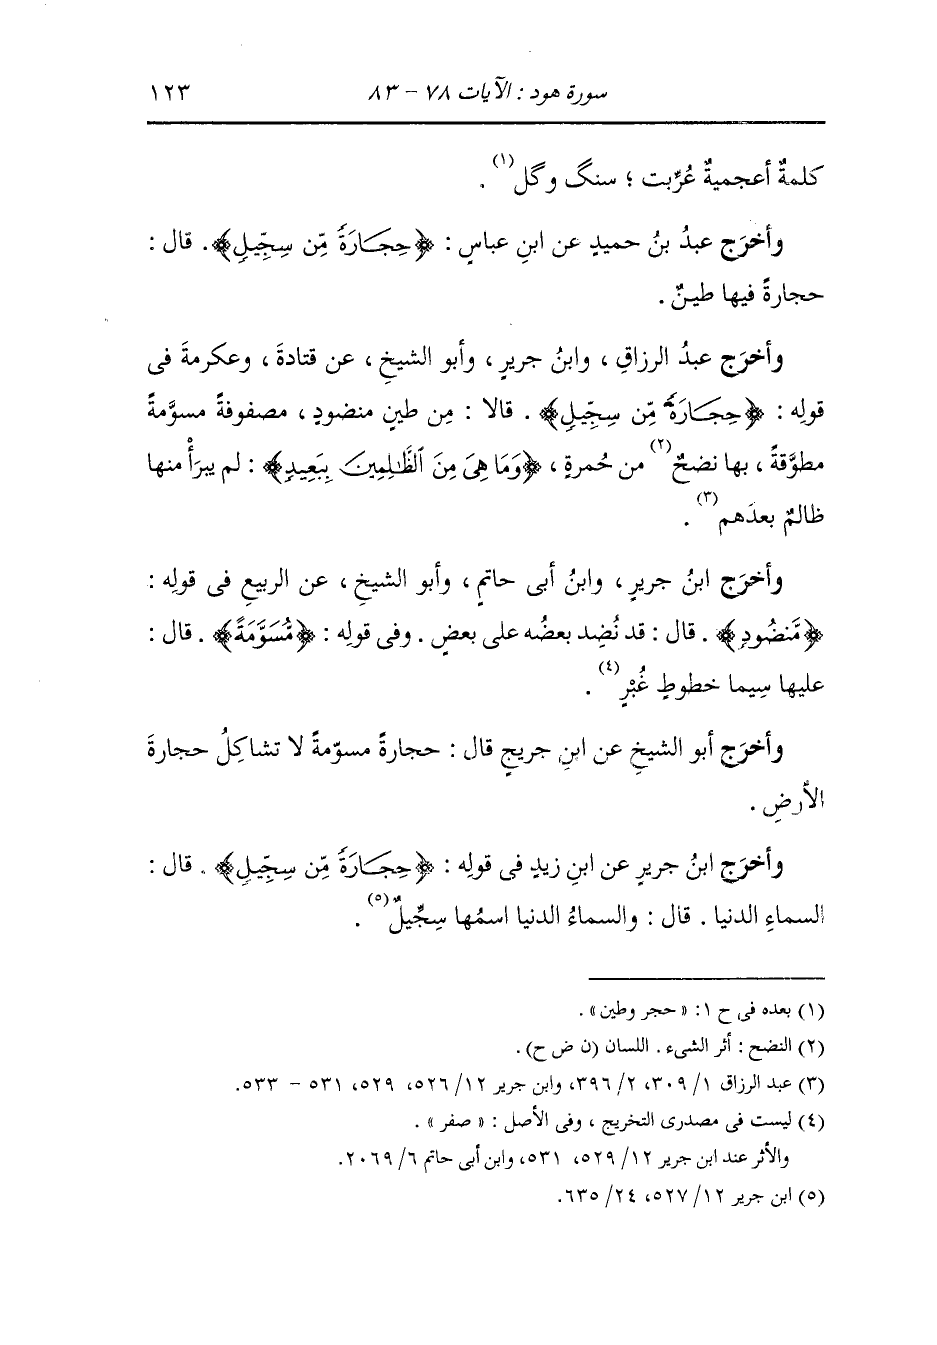 سورة هود : الآيات ٧٨ - ٨٣ ١٢٣
كلمةٌ أعجميةٌ عُرِّبت ؛ سنگ وگل(١) .
وأخرَج عبدُ بنُ حميدٍ عن ابنِ عباسٍ : ﴿حِجَارَةً مِّن سِجِّيلٍ﴾ . قال :
حجارةً فيها طينٌ .
وأخرَج عبدُ الرزاقِ ، وابنُ جريرٍ ، وأبو الشيخِ ، عن قتادةَ ، وعكرمةَ فى
قولِه : ﴿حِجَارَةً مِّن سِجِّيلٍ﴾ . قالا : مِن طينٍ منضودٍ ، مصفوفةً مسوَّمةً
مطوَّقةً ، بها نضحٌ(٢) من حُمرةٍ ، ﴿وَمَا هِىَ مِنَ ٱلظَّٰلِمِينَ بِبَعِيدٍ﴾ : لم يبرَأْ منها
ظالمٌ بعدَهم(٣) .
وأخرَج ابنُ جريرٍ ، وابنُ أبى حاتمٍ ، وأبو الشيخِ ، عن الربيعِ فى قولِه :
﴿مَّنضُودٍ﴾ . قال : قد نُضِد بعضُه على بعضٍ . وفى قولِه : ﴿مُّسَوَّمَةً﴾ . قال :
عليها سِيما خطوطٍ غُبْرٍ(٤) .
وأخرَج أبو الشيخِ عن ابنِ جريجٍ قال : حجارةً مسوّمةً لا تشاكِلُ حجارةَ
الأرضِ .
وأخرَج ابنُ جريرٍ عن ابنِ زيدٍ فى قولِه : ﴿حِجَارَةً مِّن سِجِّيلٍ﴾ . قال :
السماءِ الدنيا . قال : والسماءُ الدنيا اسمُها سِجِّيلٌ(٥) .
(١) بعده فى ح ١: « حجر وطين» .
(٢) النضح : أثر الشىء . اللسان (ن ض ح) .
(٣) عبد الرزاق ١/ ٣٠٩، ٢/ ٣٩٦، وابن جرير ١٢/ ٥٢٦، ٥٢٩، ٥٣١ - ٥٣٣.
(٤) ليست فى مصدرى التخريج ، وفى الأصل : « صفر » .
والأثر عند ابن جرير ١٢/ ٥٢٩، ٥٣١، وابن أبى حاتم ٦/ ٢٠٦٩.
(٥) ابن جرير ١٢/ ٥٢٧، ٢٤/ ٦٣٥.